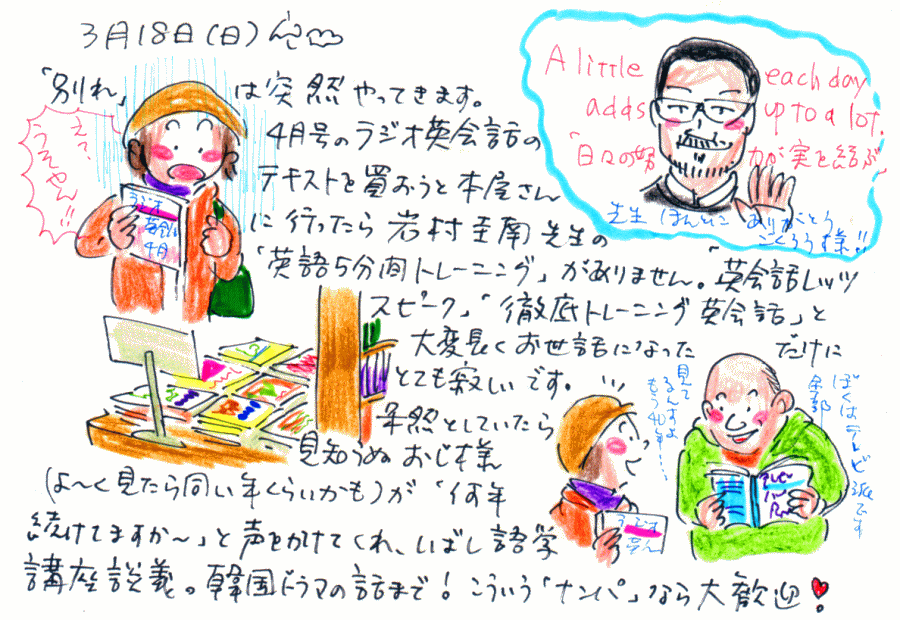 3月18日(日)
「別れ」は突然やってきます。
4月号のラジオ英会話の
テキストを買おうと本屋さん
に行ったら岩村圭南先生の
「英語5分間トレーニング」がありません。「英会話レッツ
スピーク」「徹底トレーニング英会話」と
大変長くお世話になった だけに
とても寂しいです。
呆然としていたら
見知らぬおじ様
(よ〜く見たら同い年くらいかも)が「何年
続けてますか〜」と声をかけてくれ、しばし語学
講座談義。韓国ドラマの話まで!こういう「ナンパ」なら大歓迎
えっ、
うそやん!!
ラジオ
英会話
4月
A little each day
adds up to a lot.
「日々の努力が実を結ぶ」
先生 ほんとに ありがとう
ごくろう様!!
ラジオ
ぼくはテレビ派です
全部
見て
るんですよ
もう